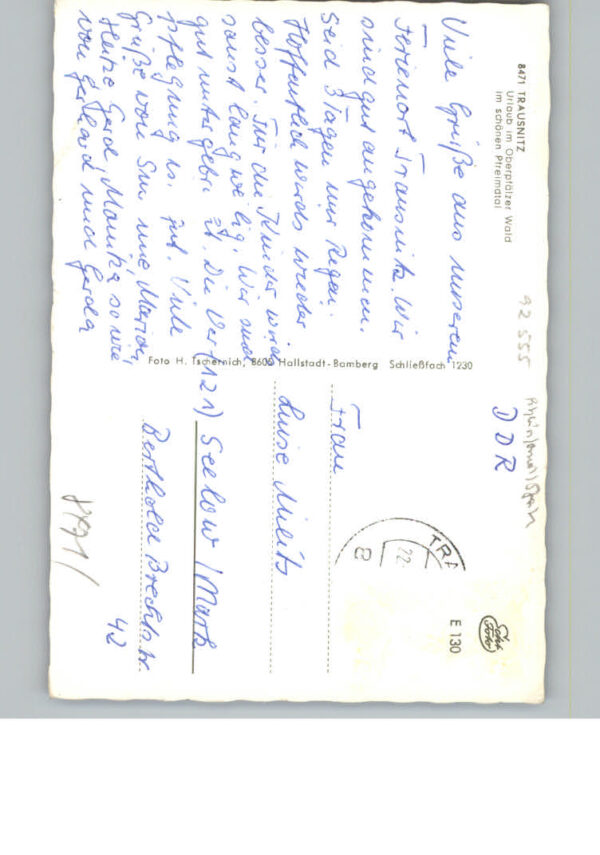 8471 TRAUSNITZ
Urlaub im Oberpfälzer Wald
im schönen Pfreimdtal
Viele Grüße aus unserem
Ferienort Trausnitz. Wir
sind gut angekommen.
Seid 3 Tagen nur Regen.
Hoffentlich wirds wieder
besser. Für die Kinder wird
sonst langweilig. Wir sind
gut untergebr. Die Ver-
pflegung is. gut. Viele
Grüße von
Heinz Gerd, Monika sowie
von Gerhard und Gerda
Foto H. Tschernich, 8605 Hallstadt-Bamberg Schließfach 1230
92 555
DDR
Frau
Luise
(121) Seelow / Mark
Berthold Brechtstr.
42
TRA
22.
8
E 130